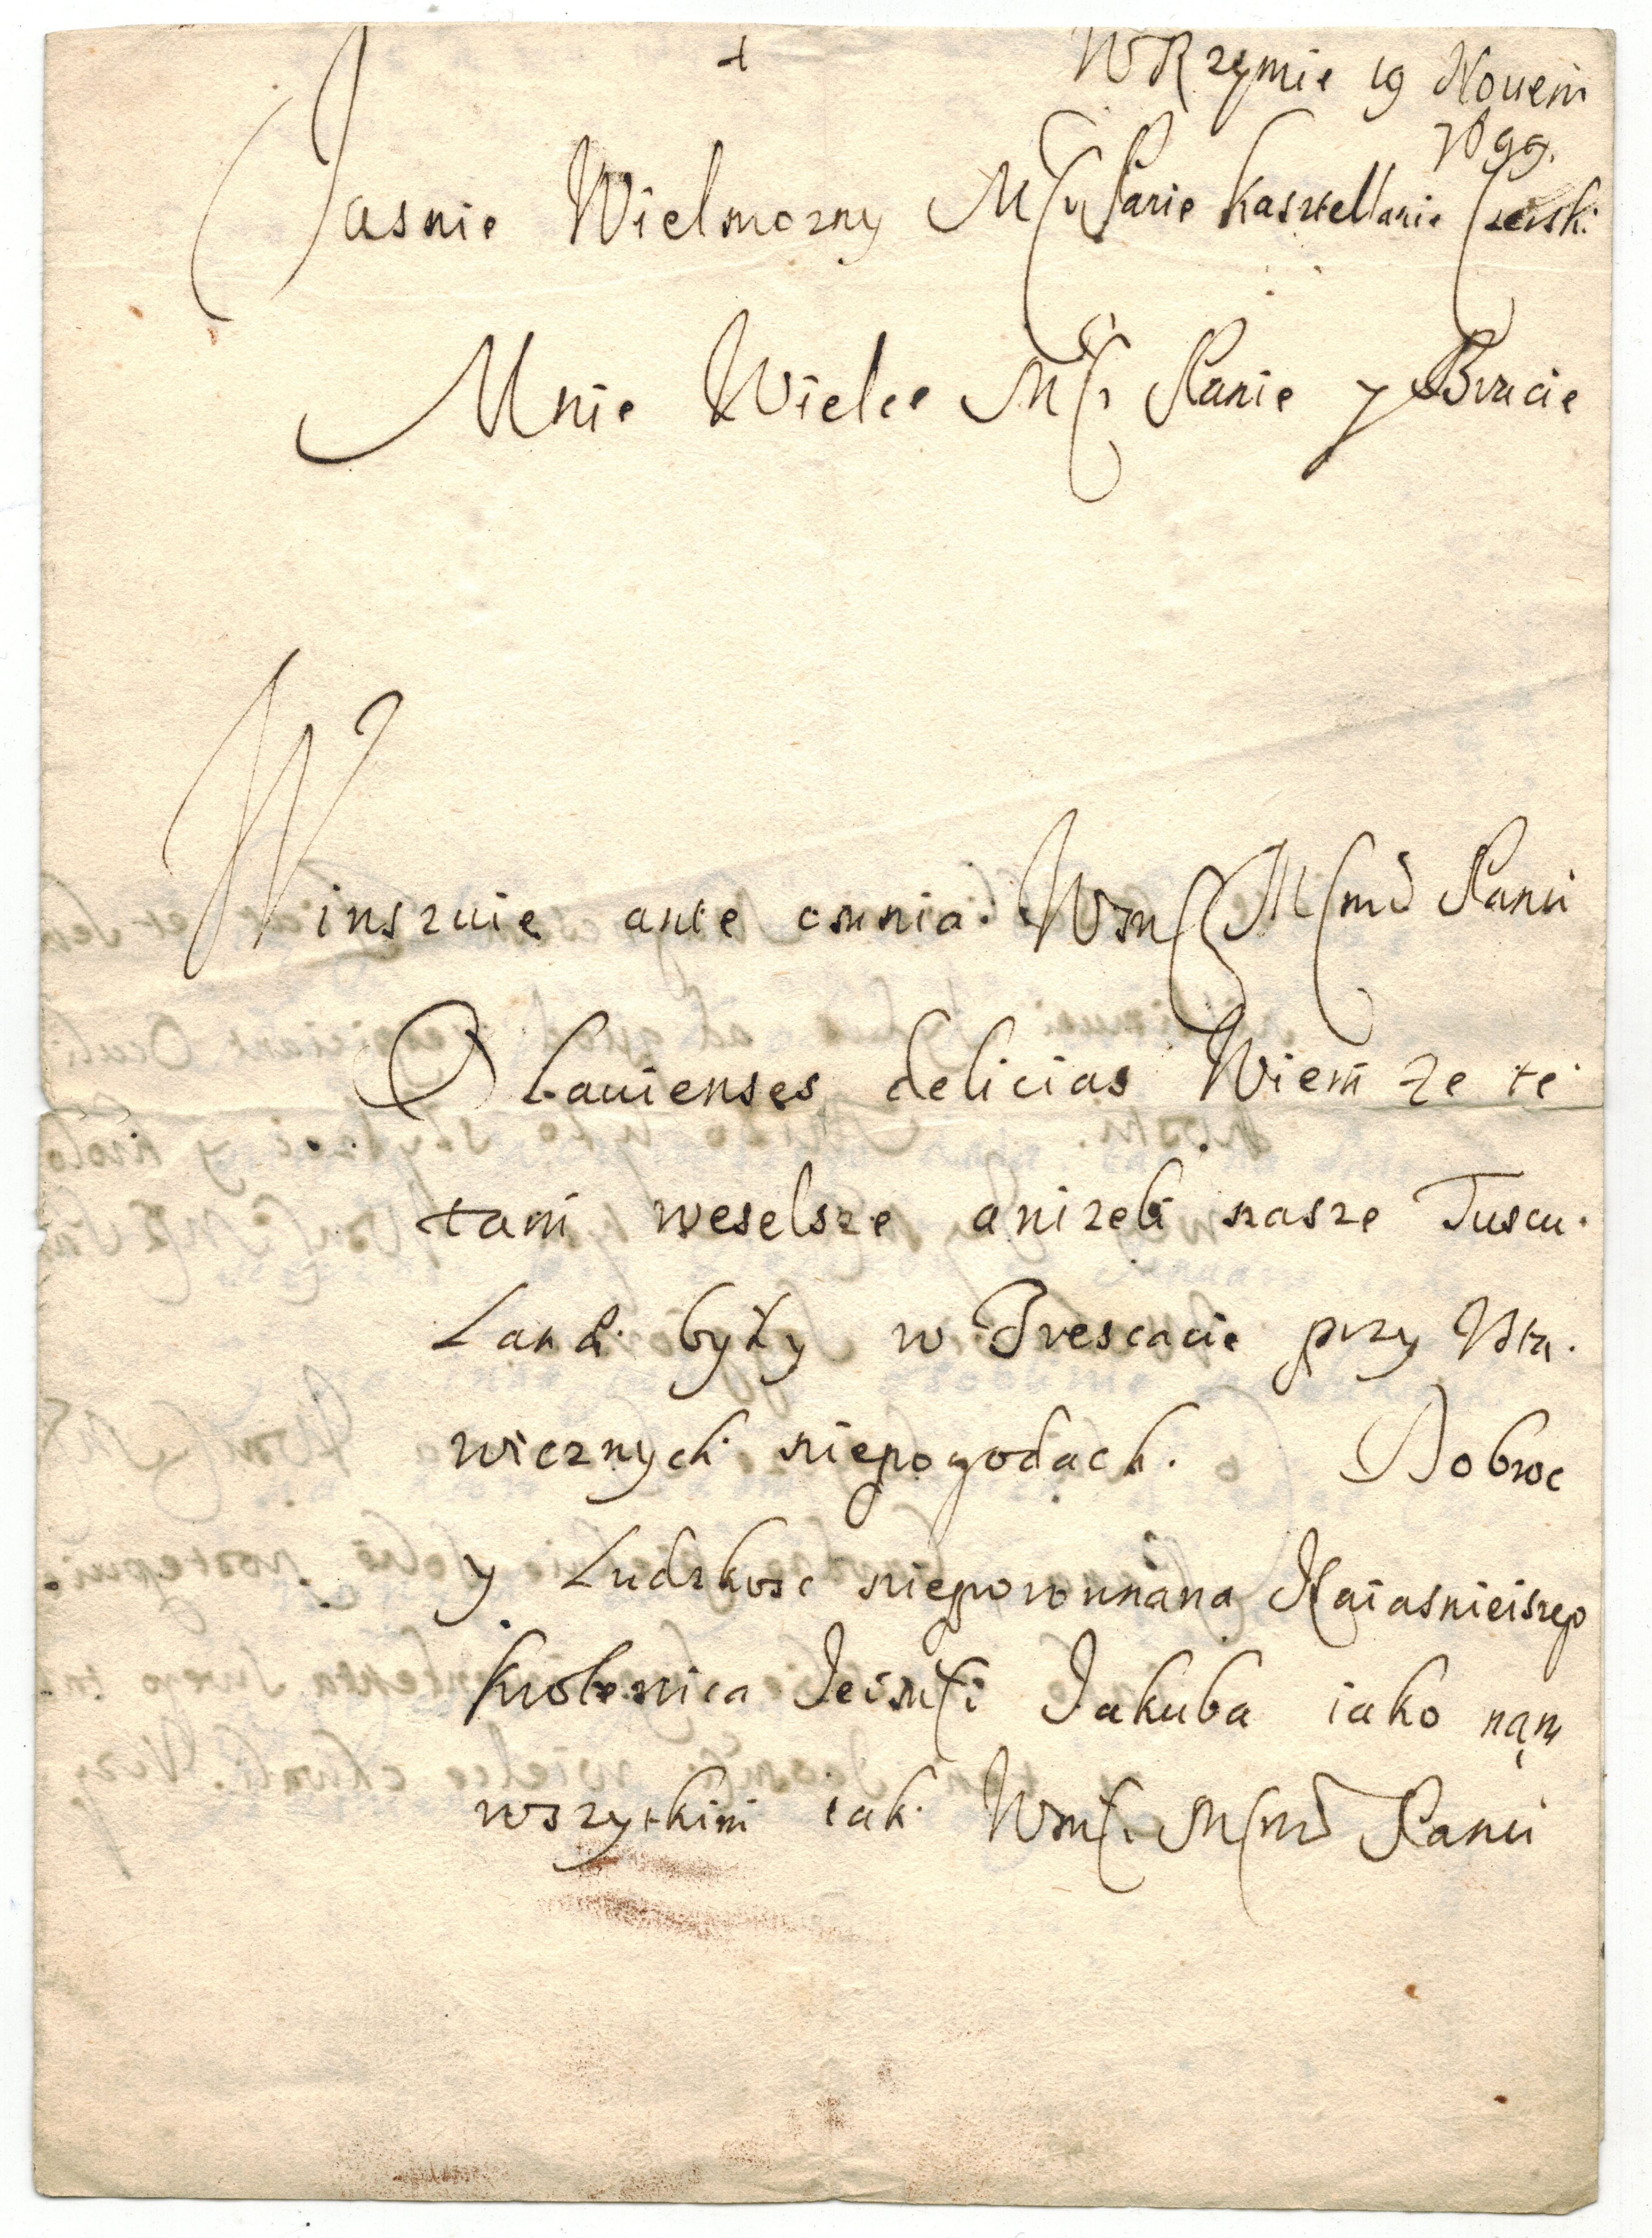 W Rzymie 19 Nouem
1699.
Jasnie Wielmozny Mſći Panie Kasztellanie Czerski
Mnie Wielce Mſći Panie y Bracie
Winszuie ante omnia. Wmſći Mſćmu Panu
Olauienses delicias Wiem ze te
tam weselsze anizeli nasze Tuscu.
Lana. były w Frescacie przy Usta.
wicznych niepogodach. Dobroc
y Ludzkosc nieporownana Naiasnieiszego
Krolewica Jeimſći Jakuba iako nąm
wszytkim iak Wmſći Mſćmu Panu